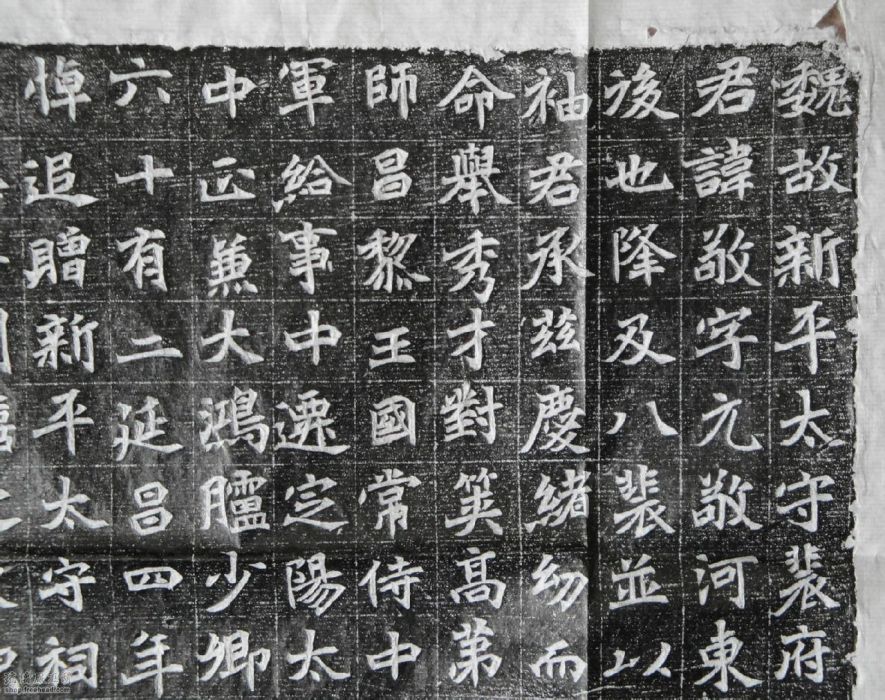 魏故新平太守裴府
君諱敬字元敬河東
後也隆及八裴並以
袖君承茲慶緒幼而
命舉秀才對筞高第
師昌黎王國常侍中
軍給事中遷定陽太
中正兼大鴻臚少卿
六十有二延昌四年
悼追贈新平太守祠